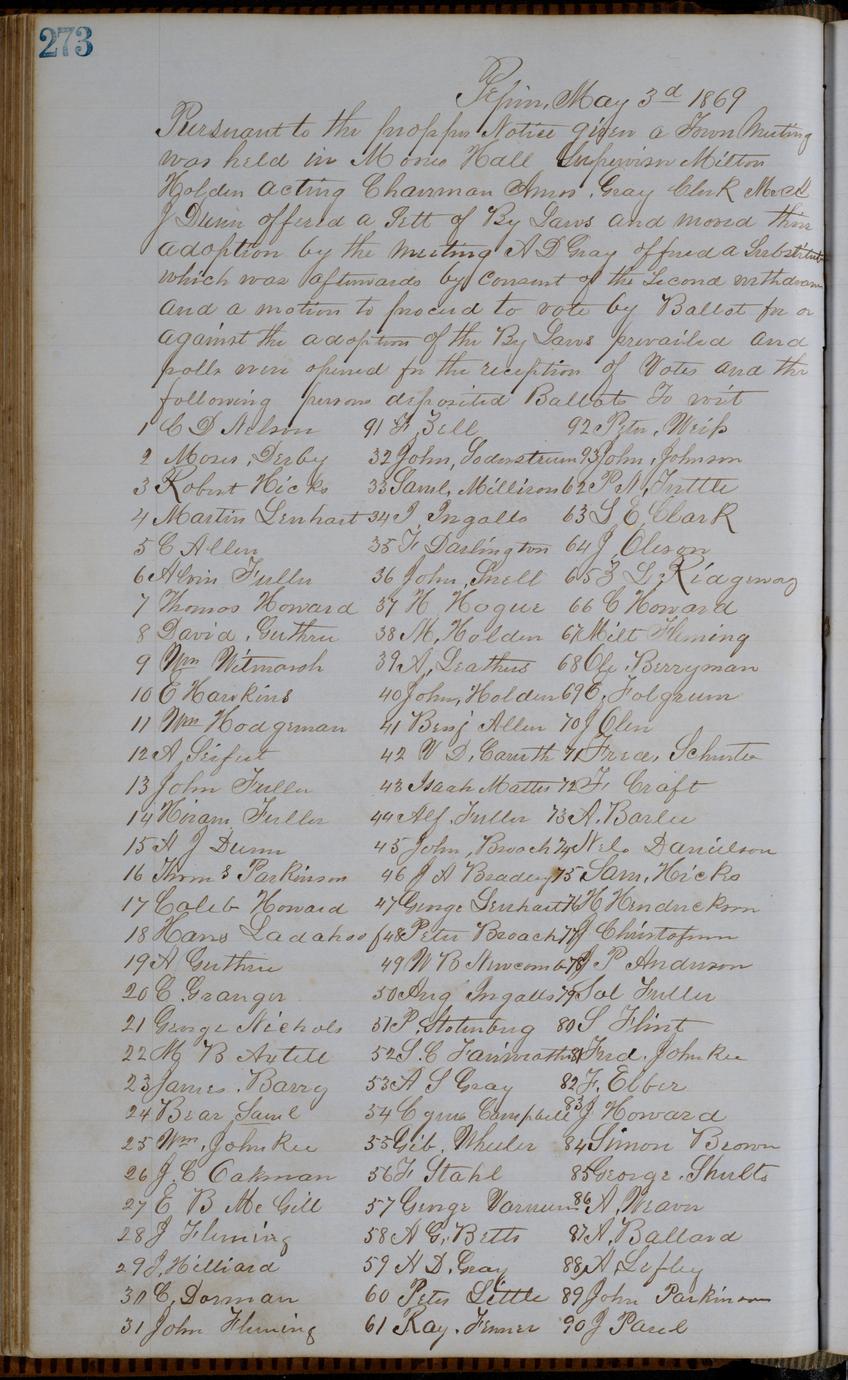 273
Pepin, May 3d 1869
Persuant to the propper Notice given a Town Meeting
was held in Moris Hall Supervisor Milton
Holden acting Chairman Amos Gray Clerk
J Dunn offered a Sett of By Laws and moved thier
adoption by the meeting A D Gray offered a Substitute
which was afterwards by consent of the Second withdrawn
and a motion to proceed to vote by Ballot for or
against the adoption of the By Laws prevailed and
polls were opened for the reception of Votes and the
following persons deposited Ballots To wit
1 C D Nelson 91 F, Zell 92 Peter, Weiss
2 Moses, Derby 32 John, Soderstrum 93 John, Johnson
3 Robert Hicks 33 Saml, Millison 62 P N, Tuttle
4 Martin Lenhart 34 J, Ingalls 63 S E Clark
5 C Allen 35 F Darlington 64 J, Oleson
6 Alvin Fuller 36 John, Snell 65 Z L, Ridgeway
7 Thomas Howard 37 H Hogue 66 C Howard
8 David, Guthrie 38 M, Holden 67 Milt Fleming
9 Wm Witmarsh 39 A, Leathers 68 Ole Berryman
10 E Hawkins 40 John, Holden 69 E, Folgrum
11 Wm Hodgeman 41 Benj Allen 70 J Olen
12 A, Seifert 42 W D, Caruth 71 Fred, Schuste
13 John Fuller 43 Isaah Matter 72 F, Craft
14 Hiram Fuller 44 Alf, Fuller 73 A. Barlee
15 A J Dunn 45 John, Broach 74 Nels Danielson
16 Thom s Parkinson 46 J A Bradey 75 Sam, Hicks
17 Caleb Howard 47 George Lenhart 76 H Hendrickson
18 Hans 48 Peter Broach 77 J Christofum
19 A Guthrie 49 W B Newcomb 78 J P Anderson
20 C. Granger 50 Aug Ingalls 79 Sol Fuller
21 George Nichols 51 P. Stotenburg 80 S Flint
22 M B Axtell 52 S. C 81 Fred, Johnkee
23 James. Barry 53 A S Gray 82 F, Elber
24 Bear Saml 54 Cyrus Campbell 83 J Howard
25 Wm, Johnkee 55 Gib. Wheeler 84 Simon Brown
26 J. C Oakman 56 F Stahl 85 George. Shults
27 E B Mc Gill 57 George Varnum 86 A, Weaver
28 J Fleming 58 A G, Betts 87 A, Ballard
29 J, Hilliard 59 A D, Gray 88 A, Lefley
30 C, Dorman 60 Peter Little 89 John Parkinson
31 John Fleming 61 Kay. Fenner 90 J Paul